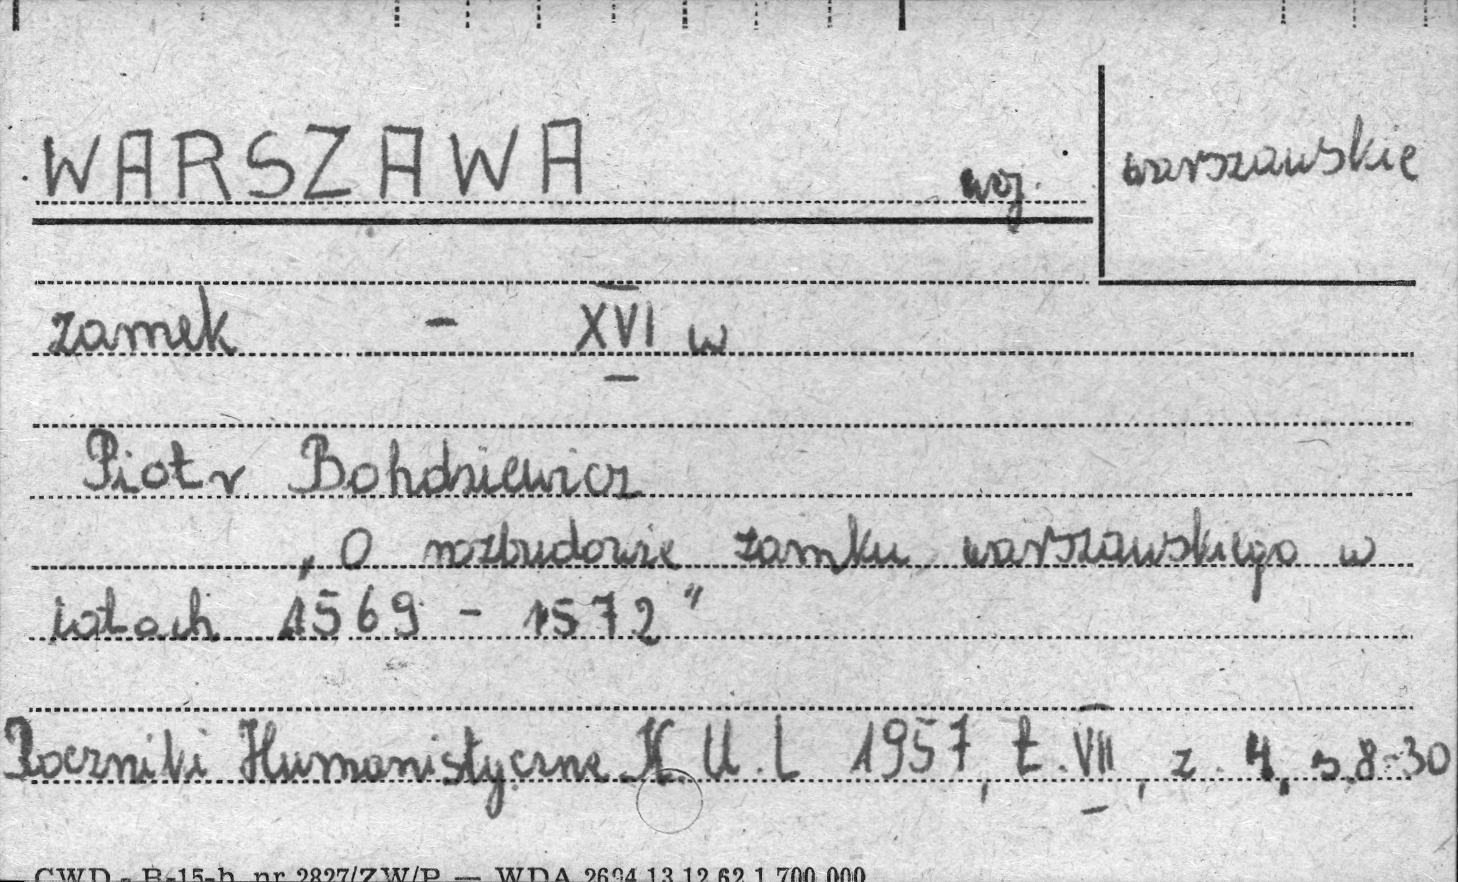 WARSZAWA woj. warszawskie
zamek - XVI w
Piotr Bohdziewicz
„O rozbudowie zamku warszawskiego w
latach 1569 - 1572"
Roczniki Humanistyczne K.U.L 1957, t. VII, z. 4, s. 8-30
CWD - B-15-b. nr 2827/ZW/P — WDA 2694 13.12.62 1.700.000